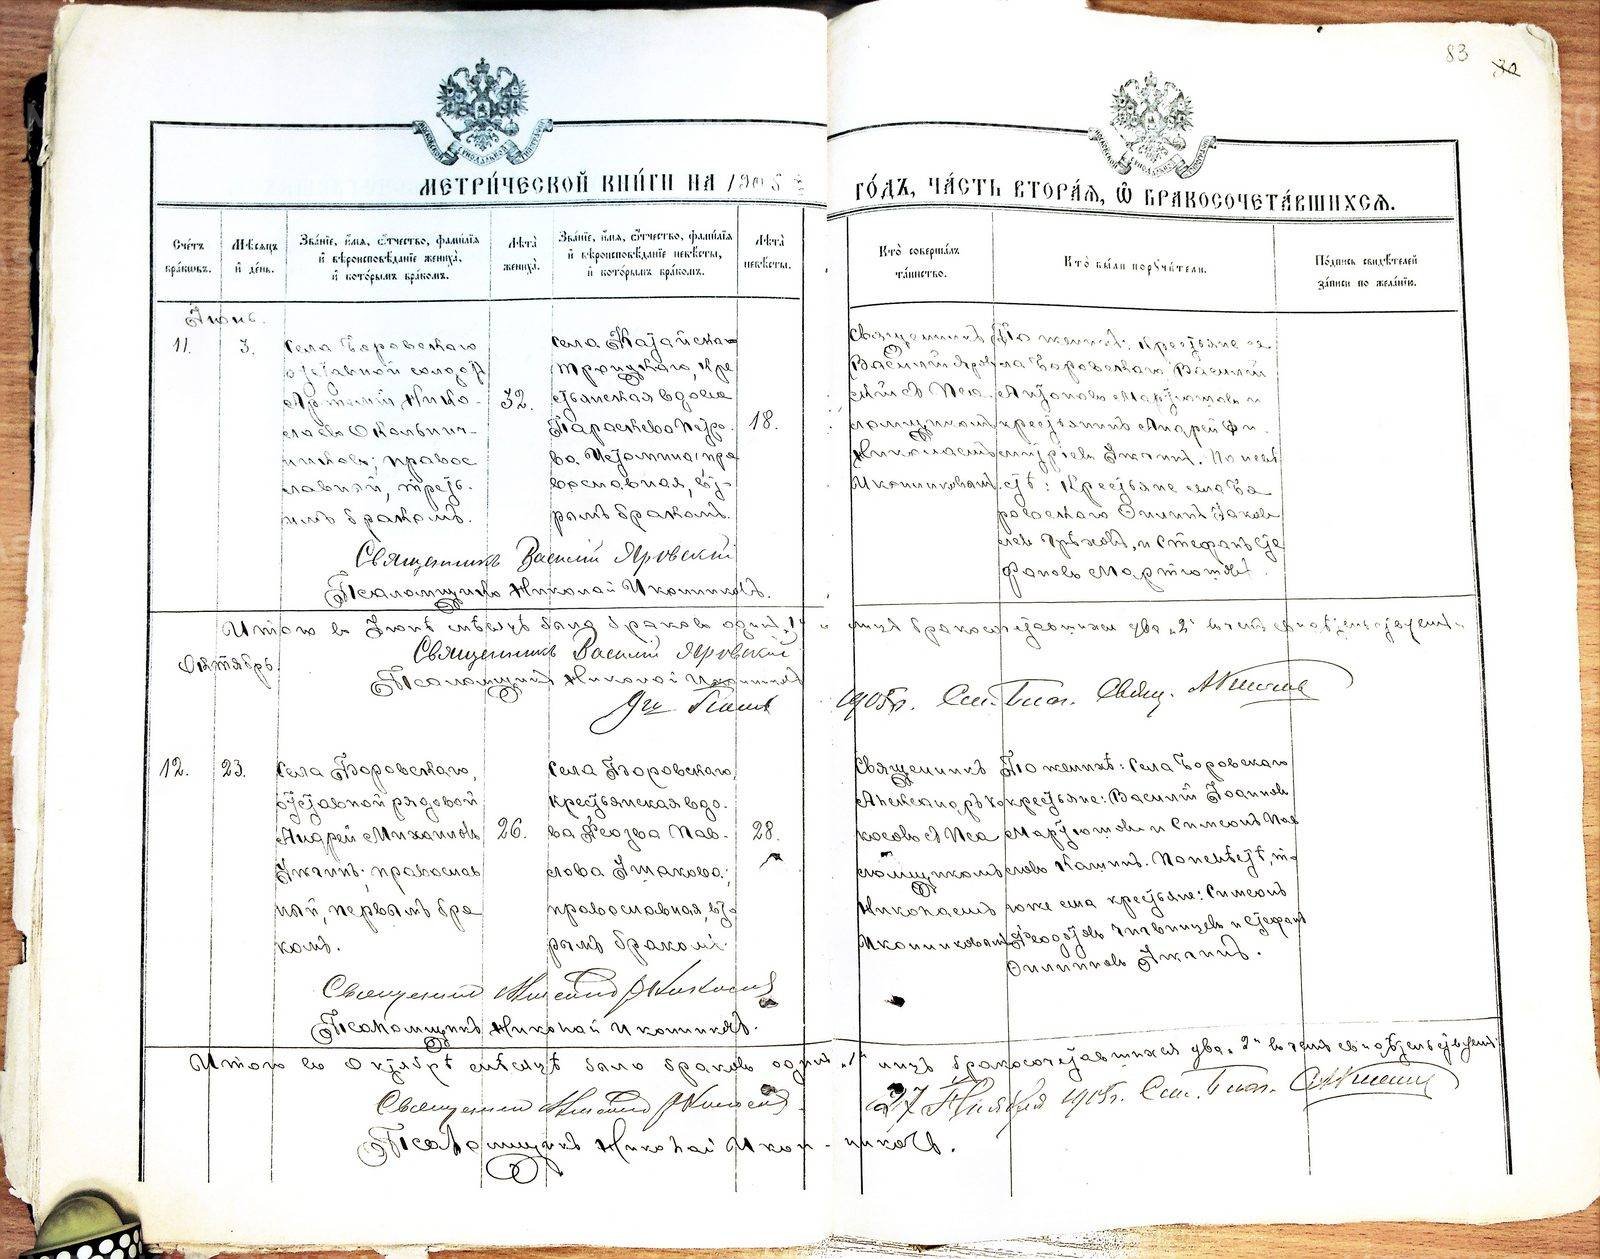 83
МЕТРИ́ЧЕСКОЙ КНИ́ГИ НА 1905
ГО́ДЪ, ЧА́СТЬ ВТОРА́Я, Ѿ БРАКОСОЧЕТА́ВШИХСЯ.
Сче́тъ бра́кѡвъ.
Мѣ́сяцъ и҆ де́нь.
Зва́нїе, и҆́мя, ѻ҆́тчество, фами́лїя и҆ вѣроисповѣ́данїе жениха̀, и҆ кото́рымъ бра́комъ.
Лѣ́та жениха̀.
Зва́нїе, и҆́мя, ѻ҆́тчество, фами́лїя и҆ вѣроисповѣ́данїе невѣ́сты, и҆ кото́рымъ бра́комъ.
Лѣ́та невѣ́сты.
Кто̀ соверша́лъ та́инство.
Кто̀ бы́ли порꙋчи́тели.
По́дпись свидѣ́телей за́писи по жела́нїю.
Іюнь.
11.
3.
Села Боровскаго
отставной солдатъ
Артемій Нико-
лаевъ
православ
славный, треть-
имъ бракомъ.
32.
села Катайска-
Троицкаго, кре
стьянская вдова
Параскева Петро-
ва Истомина, пра
вославная, вто-
рымъ бракомъ.
18.
Священникъ
Василій Яров
скій съ Пса
ломщикомъ
Николаемъ
Иконниковымъ
По женихѣ: Крестьяне се
ла Боровскаго Василій
Антоновъ Мартюшовъ и
крестьянинъ Андрей Ди-
митріевъ Ужгинъ. По невѣ
стѣ: Крестьяне села Бо
ровскаго Филиппъ Іаков
левъ и Стефанъ Сте
фановъ Мартюшовъ.
Священникъ Василій Яровскій
Псаломщикъ Николай Иконниковъ.
Итого въ Іюнѣ мѣсяцѣ было браковъ одинъ "1" и лицъ бракосочетавшихся два "2" въ чемъ свидѣтельствуемъ
Священникъ Василій Яровскій
Октябрь.
Псаломщикъ Николай Иконниковъ
1905 г. Свящ.
12.
23.
Села Боровскаго,
отставной рядовой
Андрей Михаиловъ
Ужгинъ; православ
ный, первымъ бра
комъ.
26.
Села Боровскаго,
крестьянская вдо-
ва Ѳеозва Пав-
лова Ушакова;
православная, вто
рымъ бракомъ.
28.
Священникъ
Александръ Ко
косовъ съ Пса
ломщикомъ
Николаемъ
Иконниковымъ
По женихѣ: Села Боровскаго
крестьяне: Василій Іоанновъ
Мартюшовъ и Симеонъ Пав
ловъ Кашинъ. По невѣстѣ, то-
гоже села крестьяне: Симеонъ
Ѳеодотовъ и Стефанъ
Филипповъ Ужгинъ.
Священникъ Александръ Кокосовъ
Псаломщикъ Николай Иконниковъ.
Итого въ Октябрѣ мѣсяцѣ было браковъ одинъ "1" лицъ бракосочетавшихся два "2" въ чемъ свидѣтельствуемъ:
Священникъ Александръ Кокосовъ
27 Ноября 1905 г.
Псаломщикъ Николай Иконниковъ.